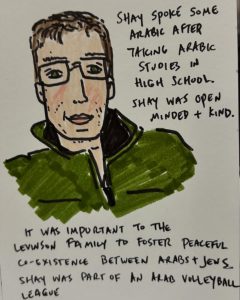 SHAY SPOKE SOME
ARABIC AFTER
TAKING ARABIC
STUDIES IN
HIGH SCHOOL.
SHAY WAS OPEN
MINDED + KIND.
IT WAS IMPORTANT TO THE
LEVINSON FAMILY TO FOSTER PEACEFUL
CO-EXISTENCE BETWEEN ARABS + JEWS.
SHAY WAS PART OF AN ARAB VOLLEYBALL
LEAGUE